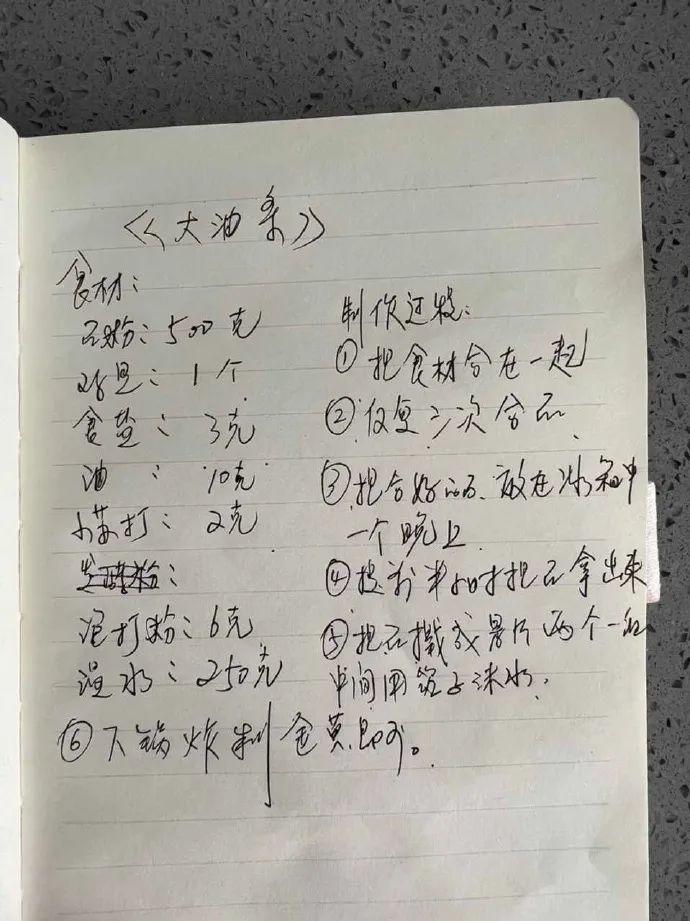 《大油条》
食材:
面粉:500克
鸡旦:1个
食盐:3克
油:10克
小苏打:2克
发酵粉:
泡打粉:6克
温水:250克
制作过程:
①把食材合在一起
②反复三次合面
③把合好的面、放在冰箱中
一个晚上
④提前半小时把面拿出来
⑤把面擀成暑片两个一组
中间用筷子沫水.
⑥下锅炸制金黄即可。